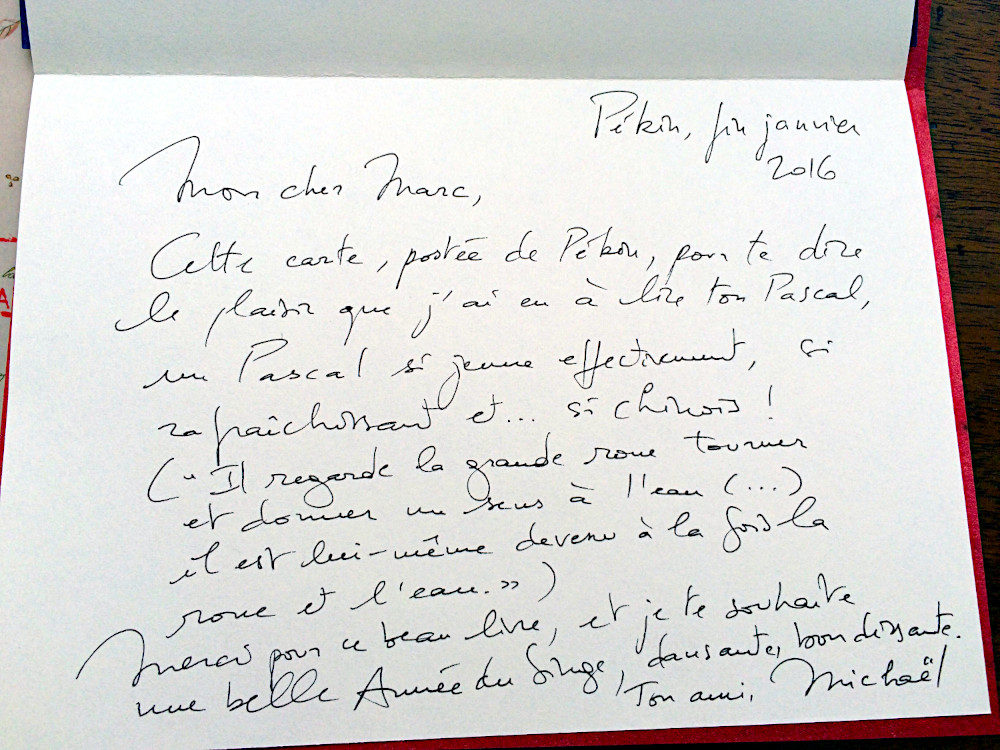 Pékin, fin janvier
2016
Mon cher Marc,
Cette carte, postée de Pékin, pour te dire
le plaisir que j'ai eu à lire ton Pascal,
un Pascal si jeune effectivement, si
rafraîchissant et... si chinois !
(" Il regarde la grande roue tourner
et donner un sens à l'eau (...)
il est lui-même devenu à la fois la
roue et l'eau. »)
Merci pour ce beau livre, et je te souhaite
une belle Année du Singe, dansante, bondissante.
Ton ami, Michaël